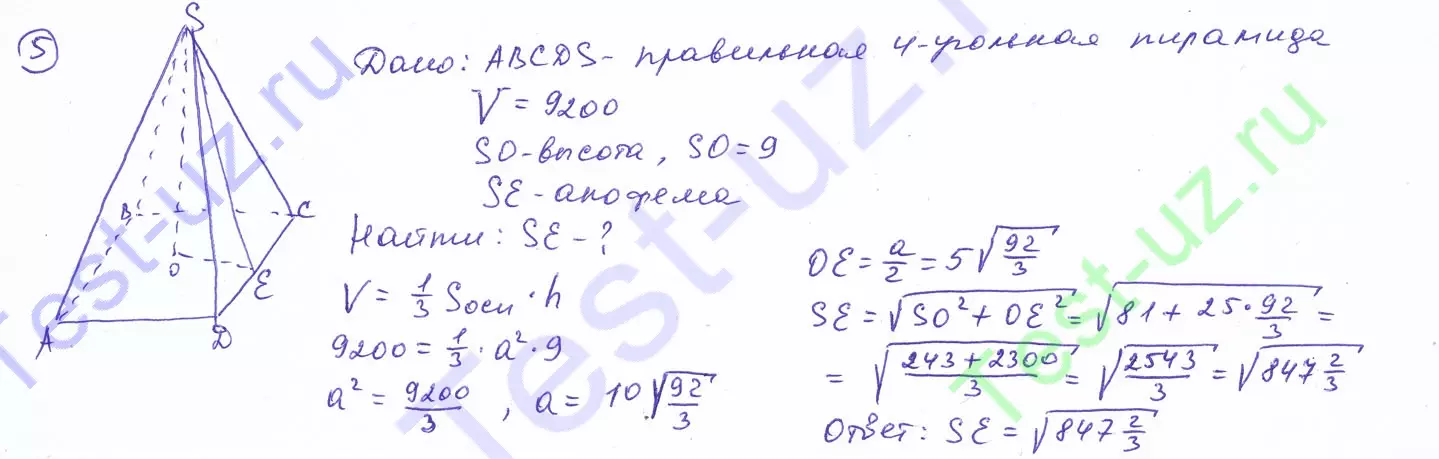 5
S
B
C
O
E
A
D
Дано: ABCDS - правильная 4-угольная пирамида
V = 9200
SO - высота, SO = 9
SE - апофема
Найти: SE - ?
V = 1/3 Sосн · h
9200 = 1/3 · a² · 9
a² = 9200/3, a = 10√(92/3)
OE = a/2 = 5√(92/3)
SE = √(SO² + OE²) = √(81 + 25 · 92/3) =
= √((243 + 2300)/3) = √(2543/3) = √(847 2/3)
Ответ: SE = √(847 2/3)
Test-uz.ru
Test-uz.ru
Test-uz.ru